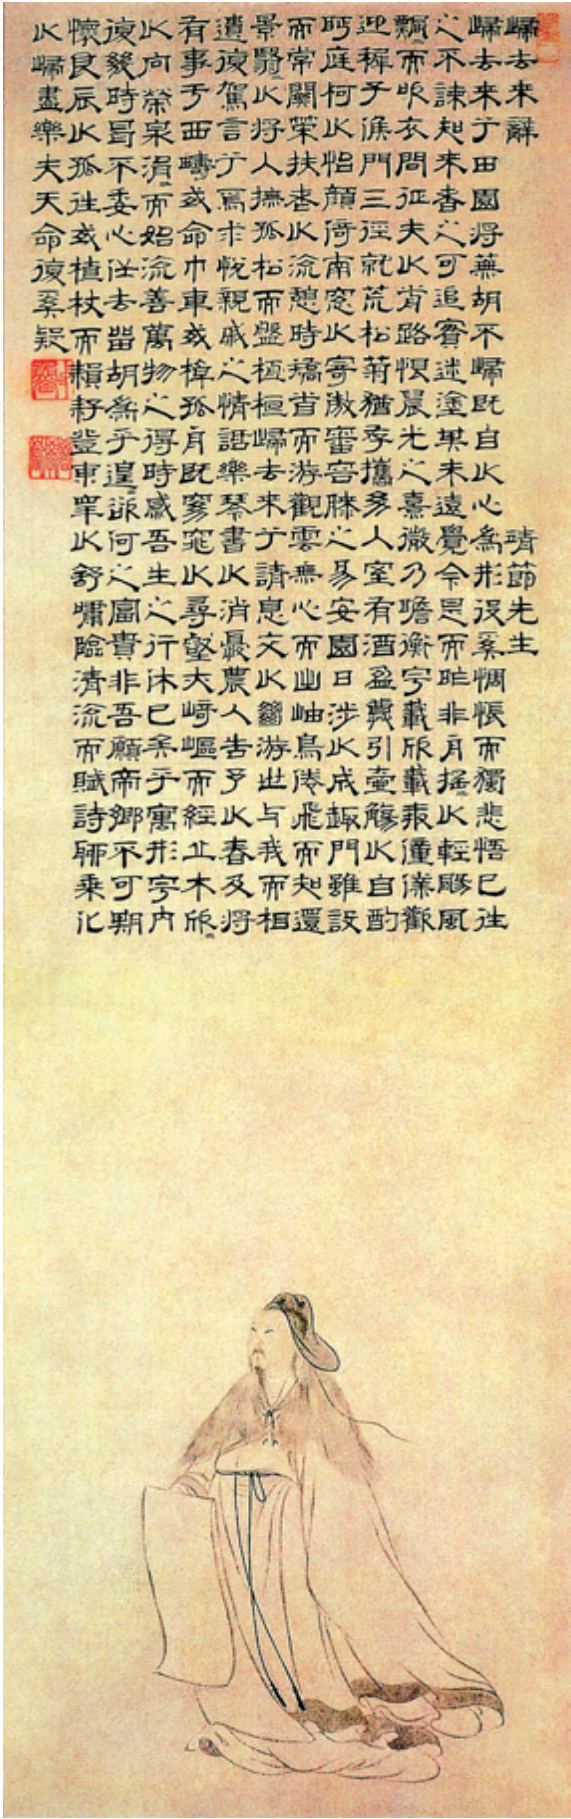 歸去来辭 靖節先生
歸去来兮田園將蕪胡不歸既自以心為形役奚惆悵而獨悲悟已往
之不諫知来者之可追實迷塗其未遠覺今是而昨非舟摇〃以輕颺風
飄〃而吹衣問征夫以前路恨晨光之熹微乃瞻衡宇載欣載奔僮僕歡
迎稚子候門三徑就荒松菊猶存攜幼入室有酒盈罇引壺觴以自酌
眄庭柯以怡顔倚南窓以寄傲審容膝之易安園日涉以成趣門雖設
而常關策扶老以流憩時矯首而游觀雲無心而出岫鳥倦飛而知還
景翳〃以將入撫孤松而盤桓歸去来兮請息交以絶游世与我而相
遺復駕言兮焉求悦親戚之情話樂琴書以消憂農人告予以春及將
有事于西疇或命巾車或棹孤舟既窈窕以尋壑亦崎嶇而經丘木欣〃
以向榮泉涓〃而始流善萬物之得時感吾生之行休已矣乎寓形宇内
復幾時曷不委心任去留胡為乎遑〃欲何之富貴非吾願帝鄉不可期
懷良辰以孤往或植杖而耔登東皋以舒嘯臨清流而賦詩聊乘化
以歸盡樂夫天命復奚疑